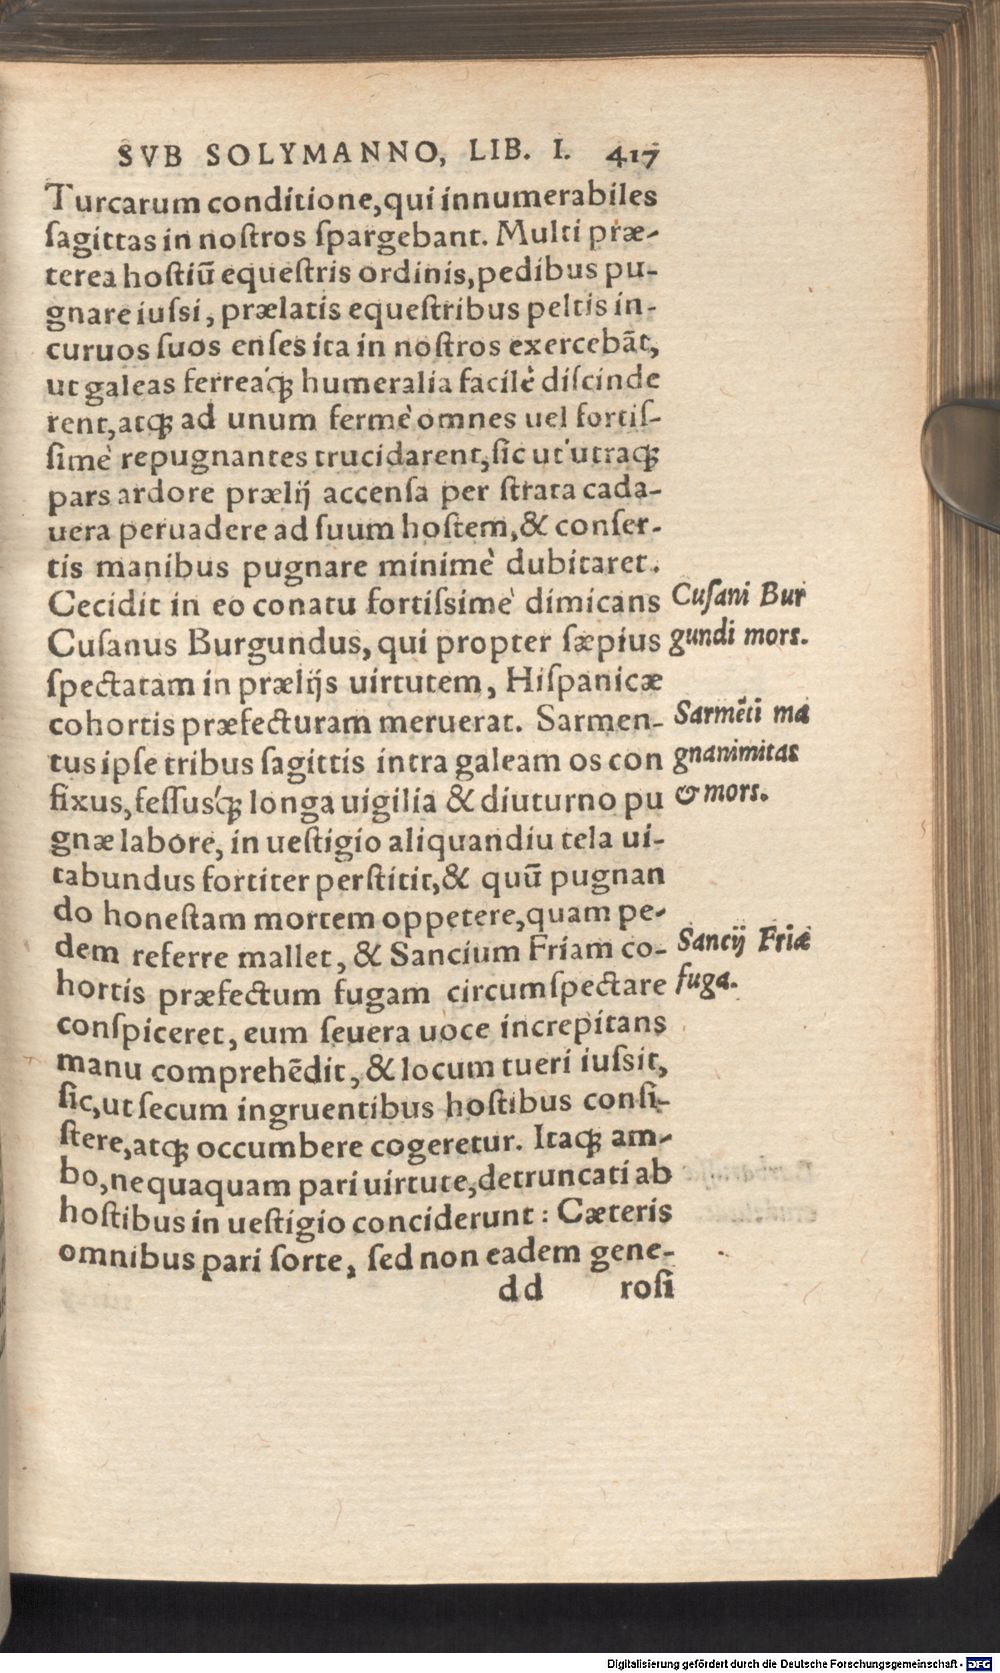 SVB SOLYMANNO, LIB. I. 417
Turcarum conditione, qui innumerabiles
ſagittas in noſtros ſpargebant. Multi præ-
terea hoſtiũ equeſtris ordinis, pedibus pu-
gnare iuſsi, prælatis equeſtribus peltis in-
curuos ſuos enſes ita in noſtros exercebãt,
ut galeas ferreaq́; humeralia facilè diſcinde
rent, atq; ad unum fermè omnes uel fortiſ-
ſimè repugnantes trucidarent, ſic ut utraq;
pars ardore prælij accenſa per ſtrata cada-
uera peruadere ad ſuum hoſtem, & conſer-
tis manibus pugnare minimè dubitaret.
Cecidit in eo conatu fortiſsimè dimicans
Cuſanus Burgundus, qui propter ſæpius
ſpectatam in prælijs uirtutem, Hiſpanicæ
cohortis præfecturam meruerat. Sarmen-
tus ipſe tribus ſagittis intra galeam os con
fixus, feſſusq́; longa uigilia & diuturno pu
gnæ labore, in ueſtigio aliquandiu tela ui-
tabundus fortiter perſtitit, & quũ pugnan
do honeſtam mortem oppetere, quam pe-
dem referre mallet, & Sancium Friam co-
hortis præfectum fugam circumſpectare
conſpiceret, eum ſeuera uoce increpitans
manu comprehẽdit, & locum tueri iuſsit,
ſic, ut ſecum ingruentibus hoſtibus conſi-
ſtere, atq; occumbere cogeretur. Itaq; am-
bo, nequaquam pari uirtute, detruncati ab
hoſtibus in ueſtigio conciderunt: Cæteris
omnibus pari ſorte, ſed non eadem gene-
dd roſi
Cuſani Bur
gundi mors.
Sarmẽti ma
gnanimitas
& mors.
Sancij Friæ
fuga.
Digitalisierung gefördert durch die Deutsche Forschungsgemeinschaft - DFG